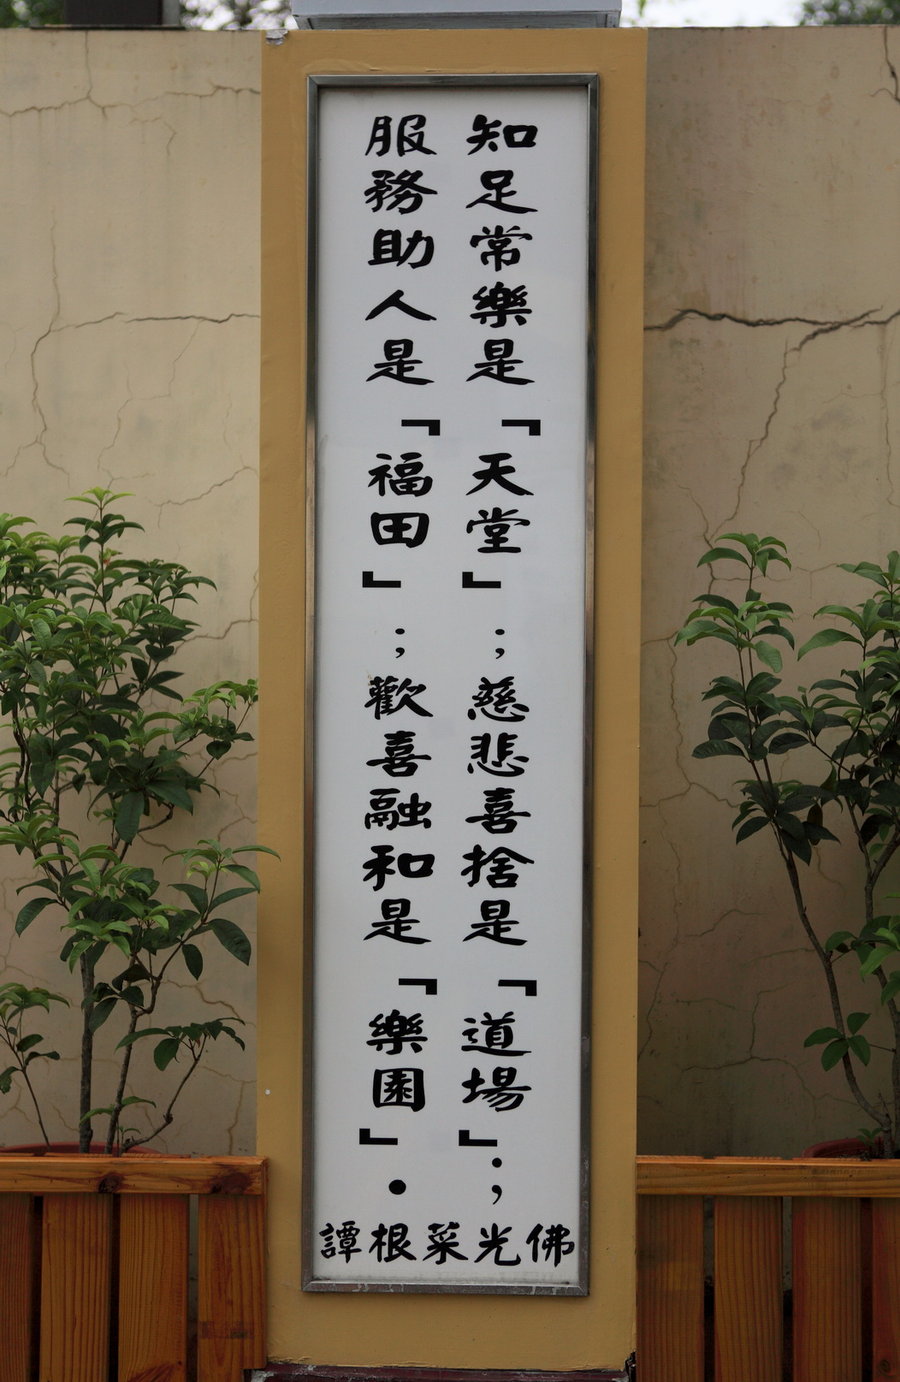 知足常樂是「天堂」；慈悲喜捨是「道場」；
服務助人是「福田」；歡喜融和是「樂園」．
佛光菜根譚